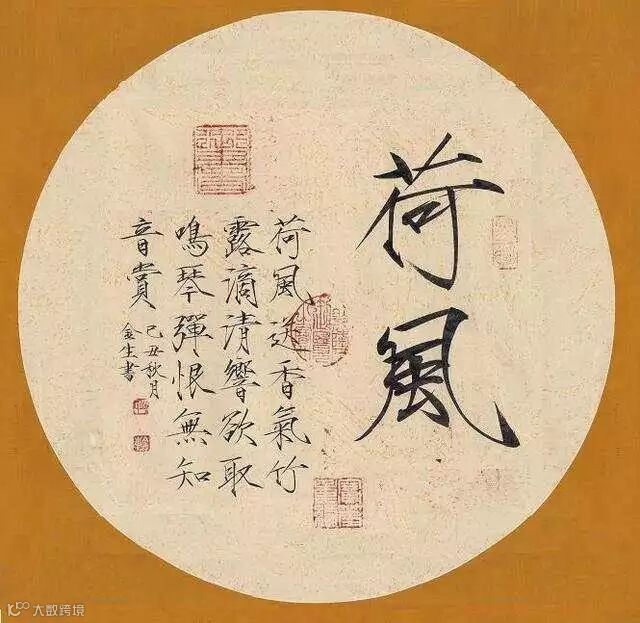 荷風
荷風送香氣竹
露滴清響欲取
鳴琴彈恨無知
音賞
己丑秋月
金生書
大数跨境